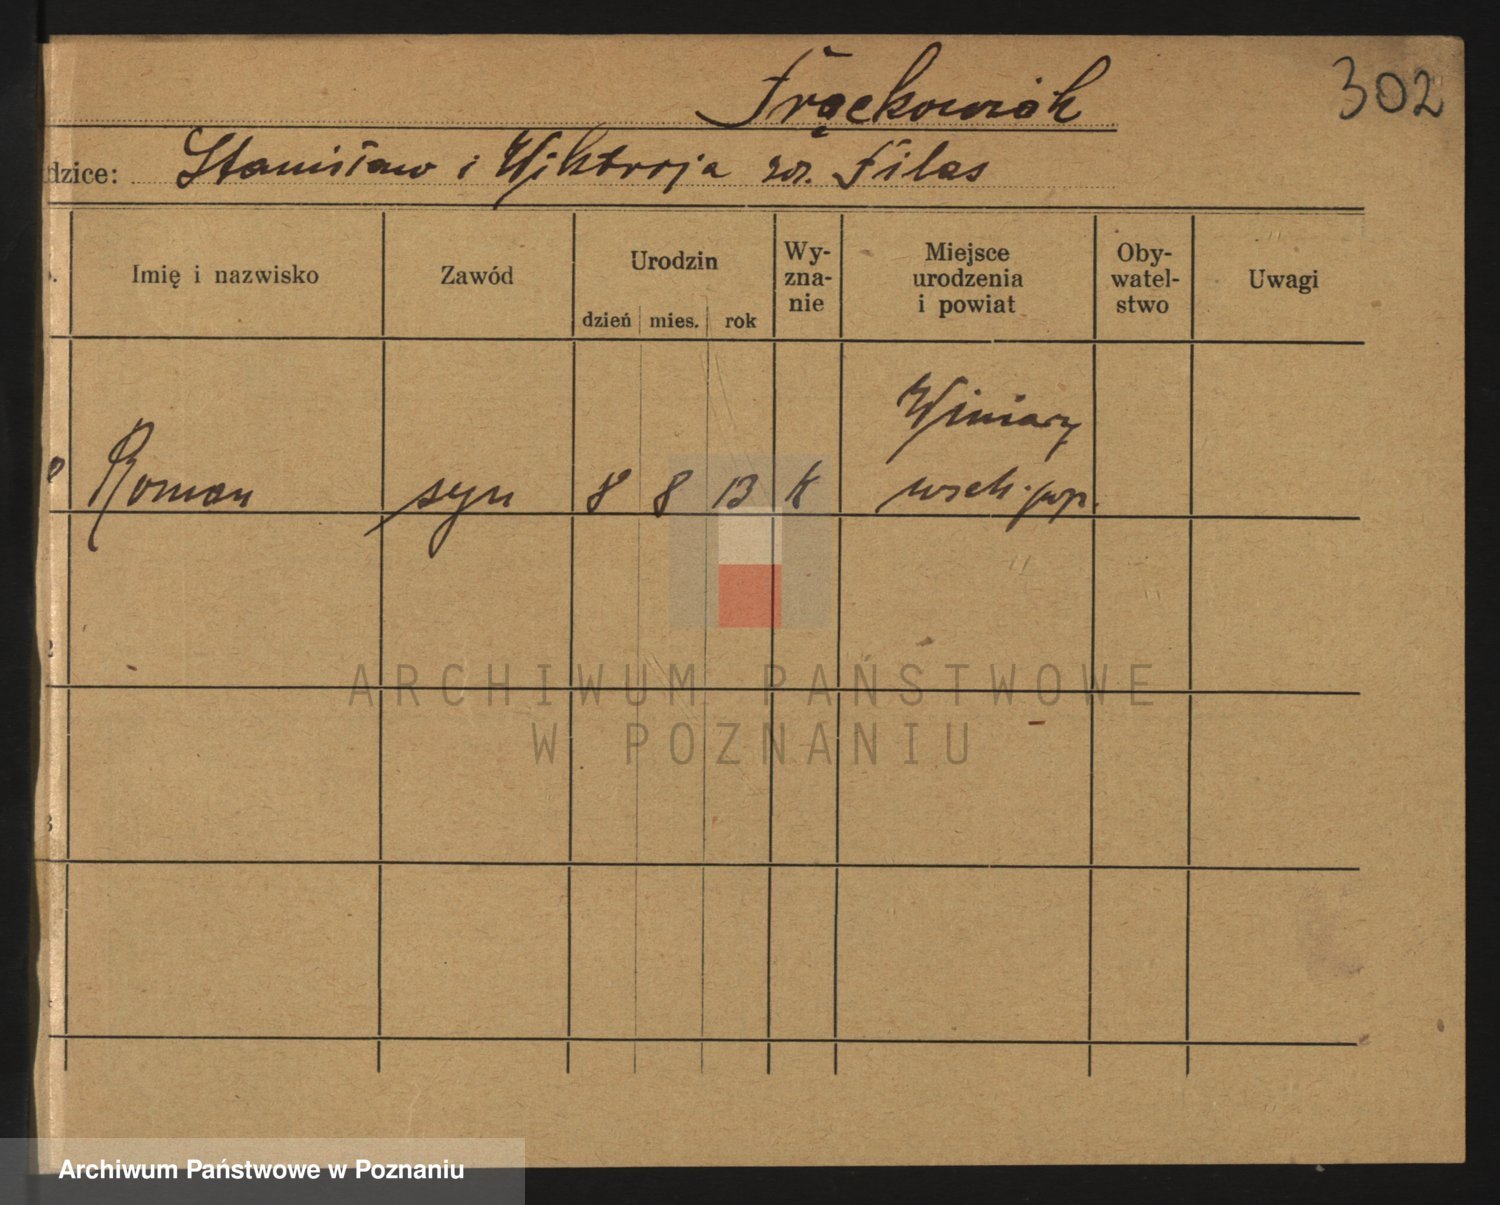 Frąckowiak
302
dzice: Stanisław i Wiktorja zd. Filas
Imię i nazwisko
Zawód
Urodzin
dzień mies. rok
Wy-
zna-
nie
Miejsce
urodzenia
i powiat
Oby-
watel-
stwo
Uwagi
Roman syn 8 8 13 K Winiary
ARCHIWUM PAŃSTWOWE
W POZNANIU
Archiwum Państwowe w Poznaniu